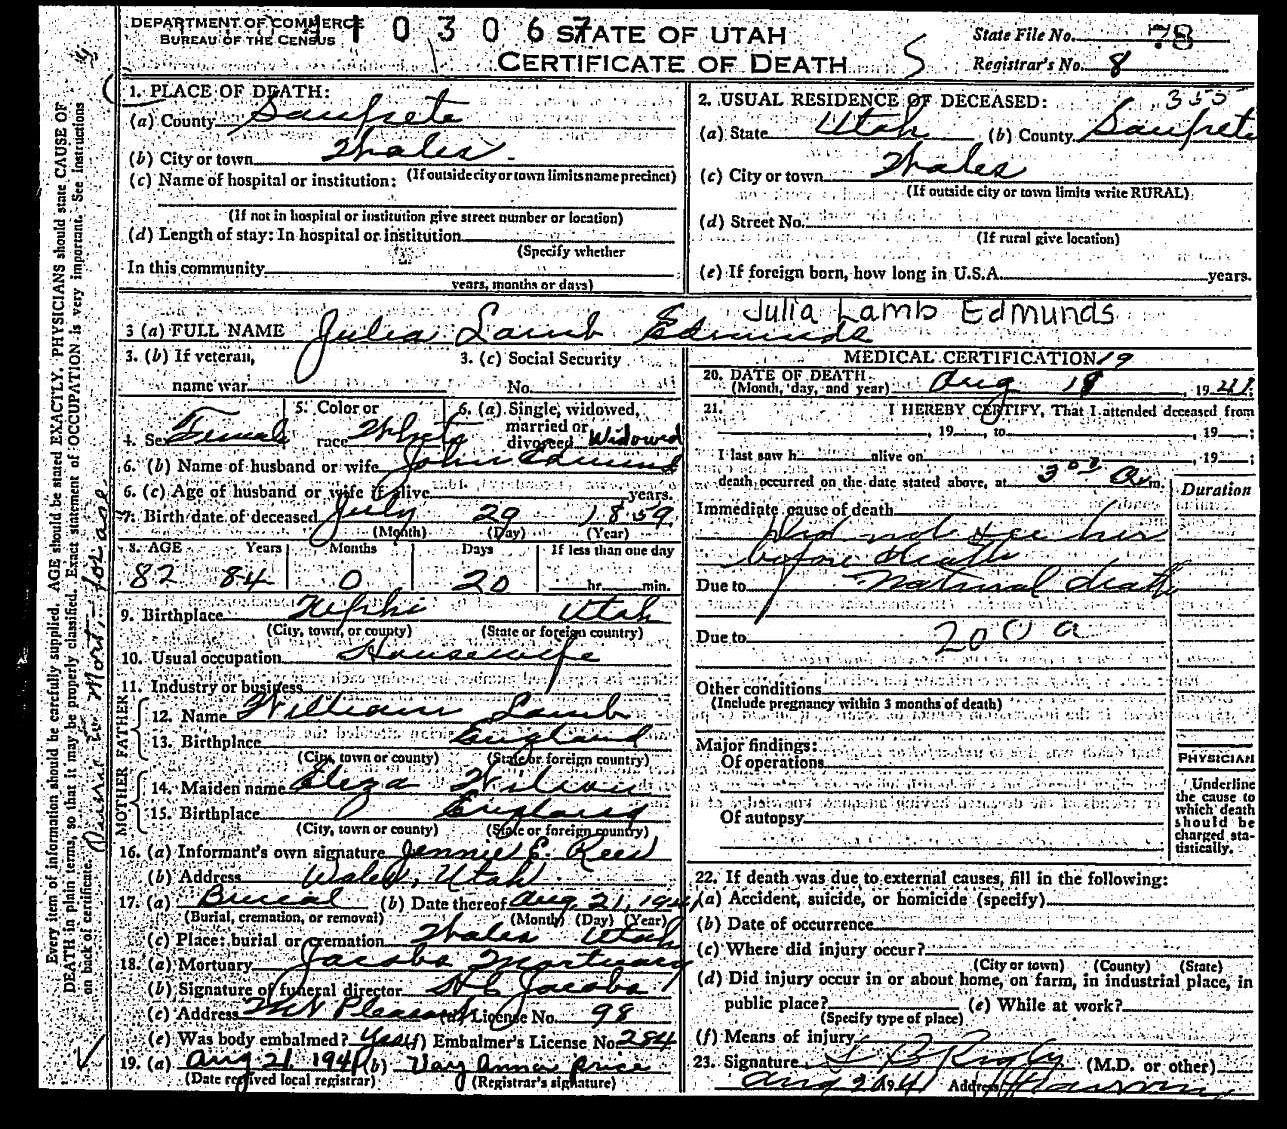 DEPARTMENT OF COMMERCE
BUREAU OF THE CENSUS
103067
STATE OF UTAH
CERTIFICATE OF DEATH
S
State File No. 78
Registrar's No. 8
Every item of information should be carefully supplied. AGE should be stated EXACTLY. PHYSICIANS should state CAUSE OF
DEATH in plain terms, so that it may be properly classified. Exact statement of OCCUPATION is very important. See instructions
on back of certificate.
1. PLACE OF DEATH:
(a) County Sanpete
(b) City or town Wales.
(If outside city or town limits name precinct)
(c) Name of hospital or institution:
(If not in hospital or institution give street number or location)
(d) Length of stay: In hospital or institution
(Specify whether
In this community
years, months or days)
2. USUAL RESIDENCE OF DECEASED: 355
(a) State Utah (b) County Sanpete
(c) City or town Wales
(If outside city or town limits write RURAL)
(d) Street No.
(If rural give location)
(e) If foreign born, how long in U.S.A. years.
Julia Lamb Edmunds
3 (a) FULL NAME Julia Lamb Edmunds
3. (b) If veteran,
name war
3. (c) Social Security
No.
4. Sex Female
5. Color or
race White
6. (a) Single, widowed,
married or
divorced Widowed
6. (b) Name of husband or wife John Edmund
6. (c) Age of husband or wife if alive years.
7. Birth date of deceased July 29 1859
(Month) (Day) (Year)
8. AGE Years Months Days If less than one day
82 84 0 20 hr. min.
9. Birthplace Nephi Utah
(City, town, or county) (State or foreign country)
10. Usual occupation Housewife
11. Industry or business
FATHER
12. Name William Lamb
13. Birthplace England
(City, town or county) (State or foreign country)
MOTHER
14. Maiden name Eliza Wilson
15. Birthplace England
(City, town or county) (State or foreign country)
16. (a) Informant's own signature Jennie E. Rees
(b) Address Wales, Utah
17. (a) Burial (b) Date thereof Aug. 21, 1941
(Burial, cremation, or removal) (Month) (Day) (Year)
(c) Place: burial or cremation Wales Utah
18. (a) Mortuary Jacobs Mortuary
(b) Signature of funeral director Jacobs
(c) Address Mt Pleasant (d) License No. 98
(e) Was body embalmed? Yes (f) Embalmer's License No. 284
19. (a) Aug 21, 1941 (b) Vay Anna Price
(Date received local registrar) (Registrar's signature)
MEDICAL CERTIFICATION 19
20. DATE OF DEATH
(Month, day, and year) Aug 18, 1941
21. I HEREBY CERTIFY, That I attended deceased from
, 19 , to , 19 ;
I last saw h alive on , 19 ;
death occurred on the date stated above, at 3 00 A m.
Duration
Immediate cause of death
Did not see her
before death
Due to Natural death
Due to 200 a
Other conditions
(Include pregnancy within 3 months of death)
Major findings:
Of operations
Of autopsy
PHYSICIAN
Underline
the cause to
which death
should be
charged sta-
tistically.
22. If death was due to external causes, fill in the following:
(a) Accident, suicide, or homicide (specify)
(b) Date of occurrence
(c) Where did injury occur?
(City or town) (County) (State)
(d) Did injury occur in or about home, on farm, in industrial place, in
public place? (e) While at work?
(Specify type of place)
(f) Means of injury
23. Signature (M.D. or other)
Aug 20 41 Address